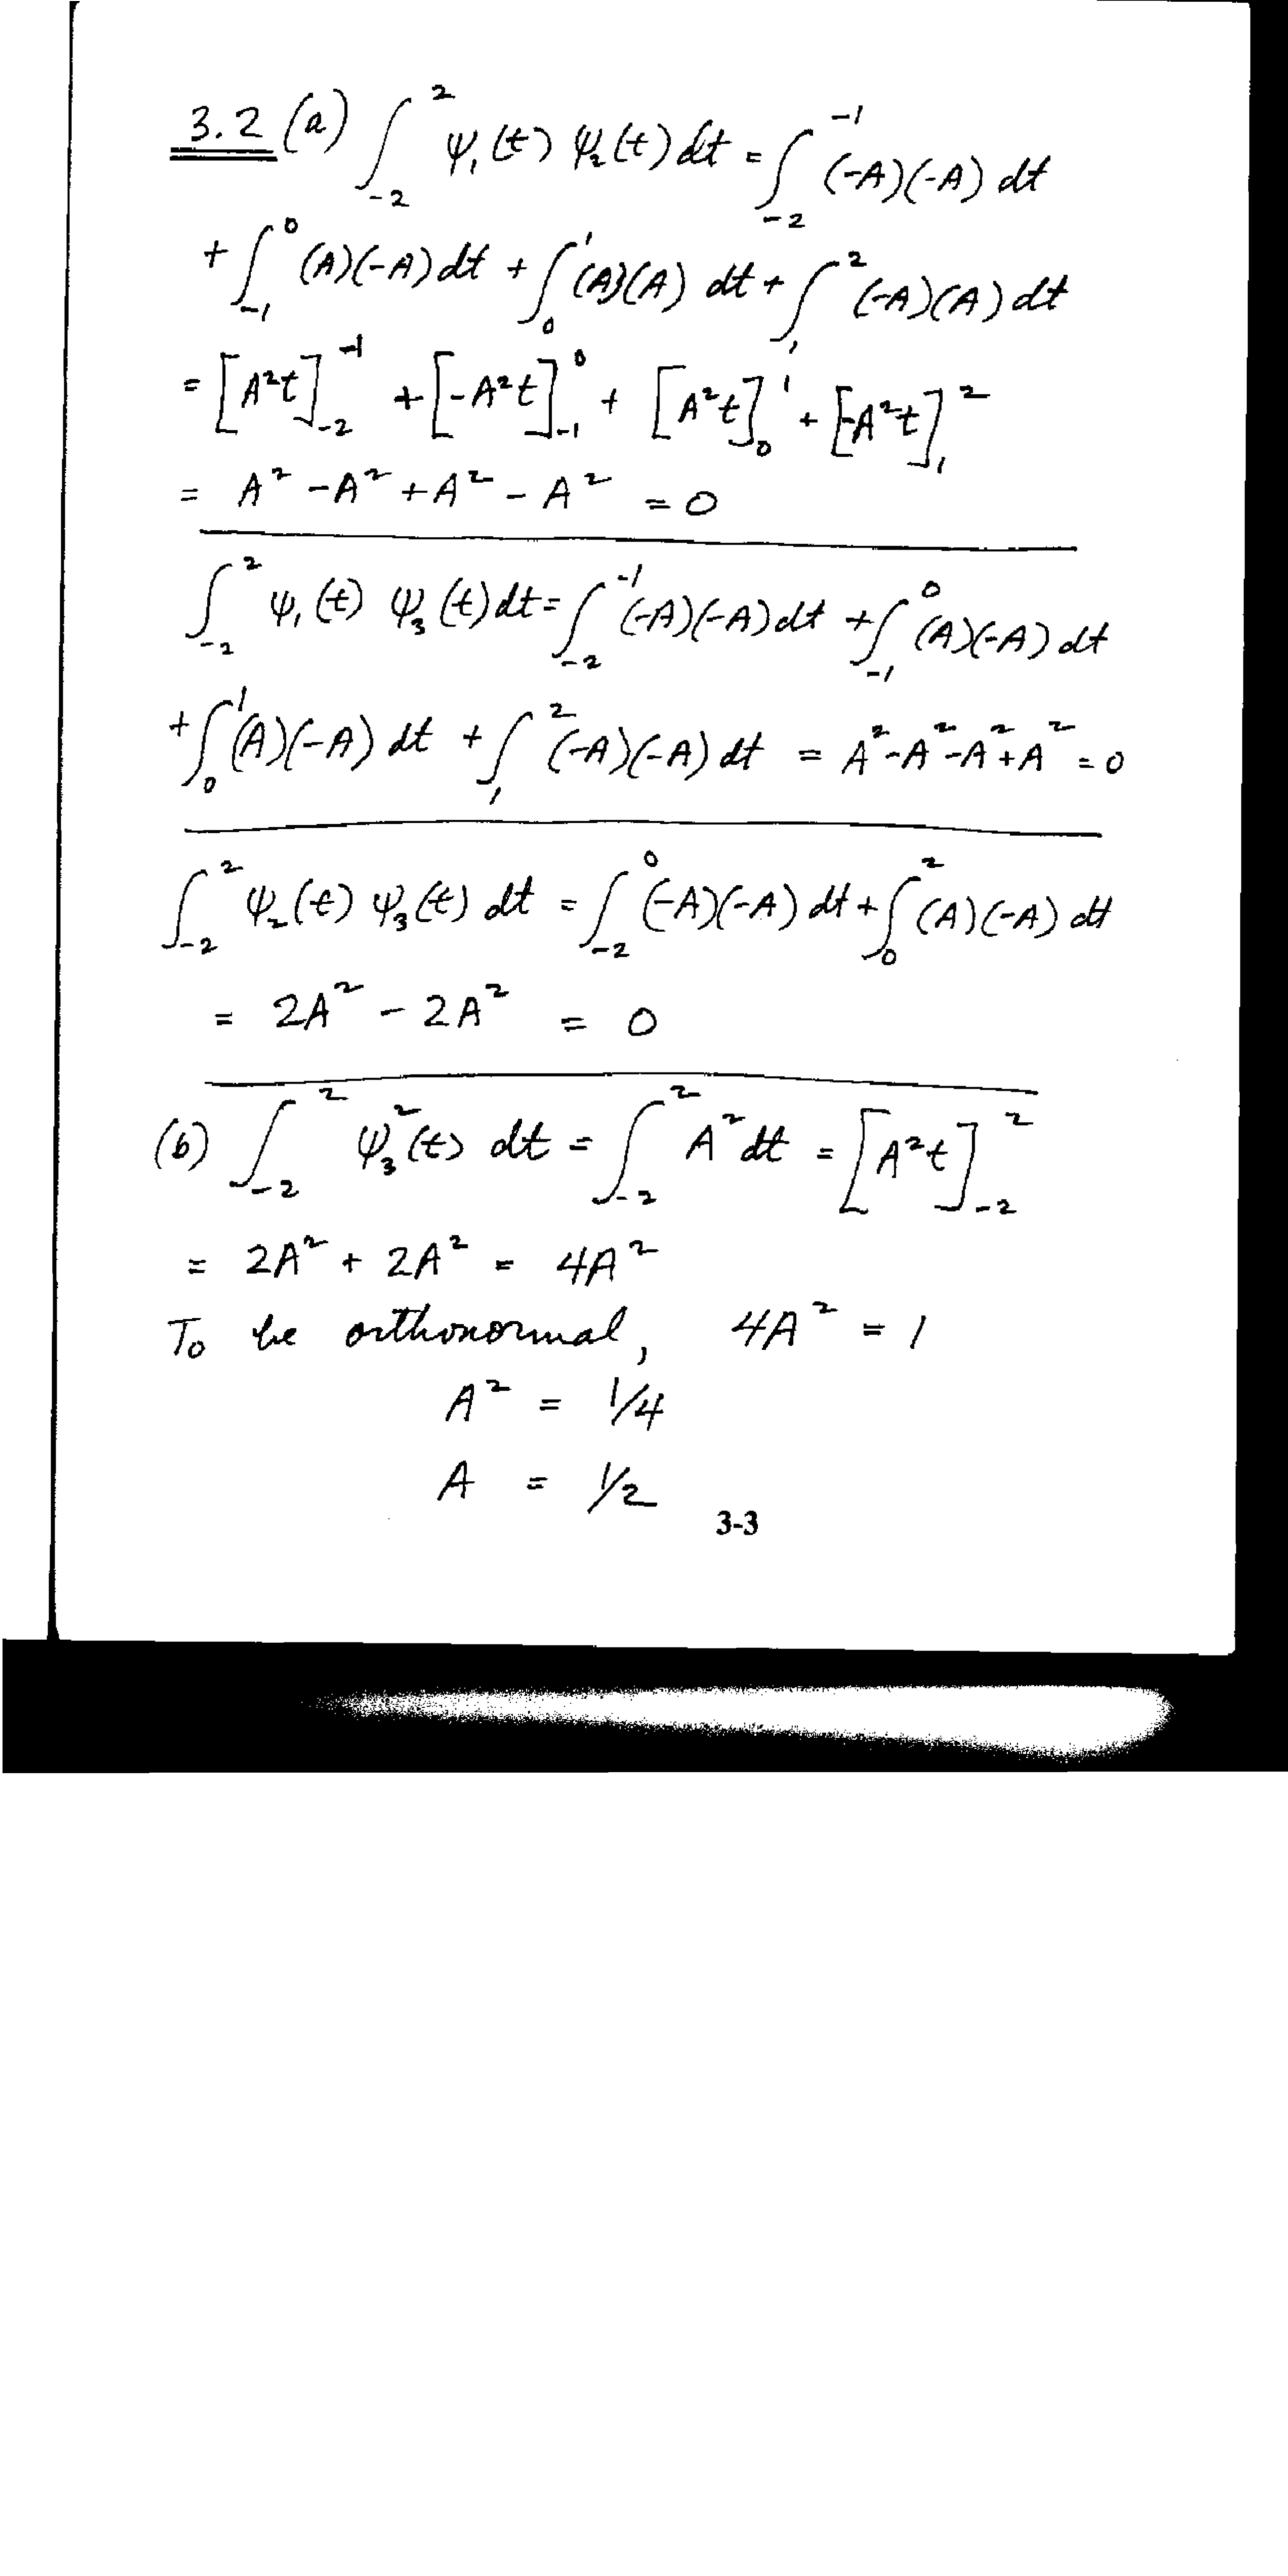 3.2 (a) ∫_{-2}^{2} ψ₁(t) ψ₂(t) dt = ∫_{-2}^{-1} (-A)(-A) dt
+ ∫_{-1}^{0} (A)(-A) dt + ∫_{0}^{1} (A)(A) dt + ∫_{1}^{2} (-A)(A) dt
= [A²t]_{-2}^{-1} + [-A²t]_{-1}^{0} + [A²t]_{0}^{1} + [-A²t]_{1}^{2}
= A² - A² + A² - A² = 0
∫_{-2}^{2} ψ₁(t) ψ₃(t) dt = ∫_{-2}^{-1} (-A)(-A) dt + ∫_{-1}^{0} (A)(-A) dt
+ ∫_{0}^{1} (A)(-A) dt + ∫_{1}^{2} (-A)(-A) dt = A² - A² - A² + A² = 0
∫_{-2}^{2} ψ₂(t) ψ₃(t) dt = ∫_{-2}^{0} (-A)(-A) dt + ∫_{0}^{2} (A)(-A) dt
= 2A² - 2A² = 0
(b) ∫_{-2}^{2} ψ₃²(t) dt = ∫_{-2}^{2} A² dt = [A²t]_{-2}^{2}
= 2A² + 2A² = 4A²
To be orthonormal, 4A² = 1
A² = 1/4
A = 1/2
3-3